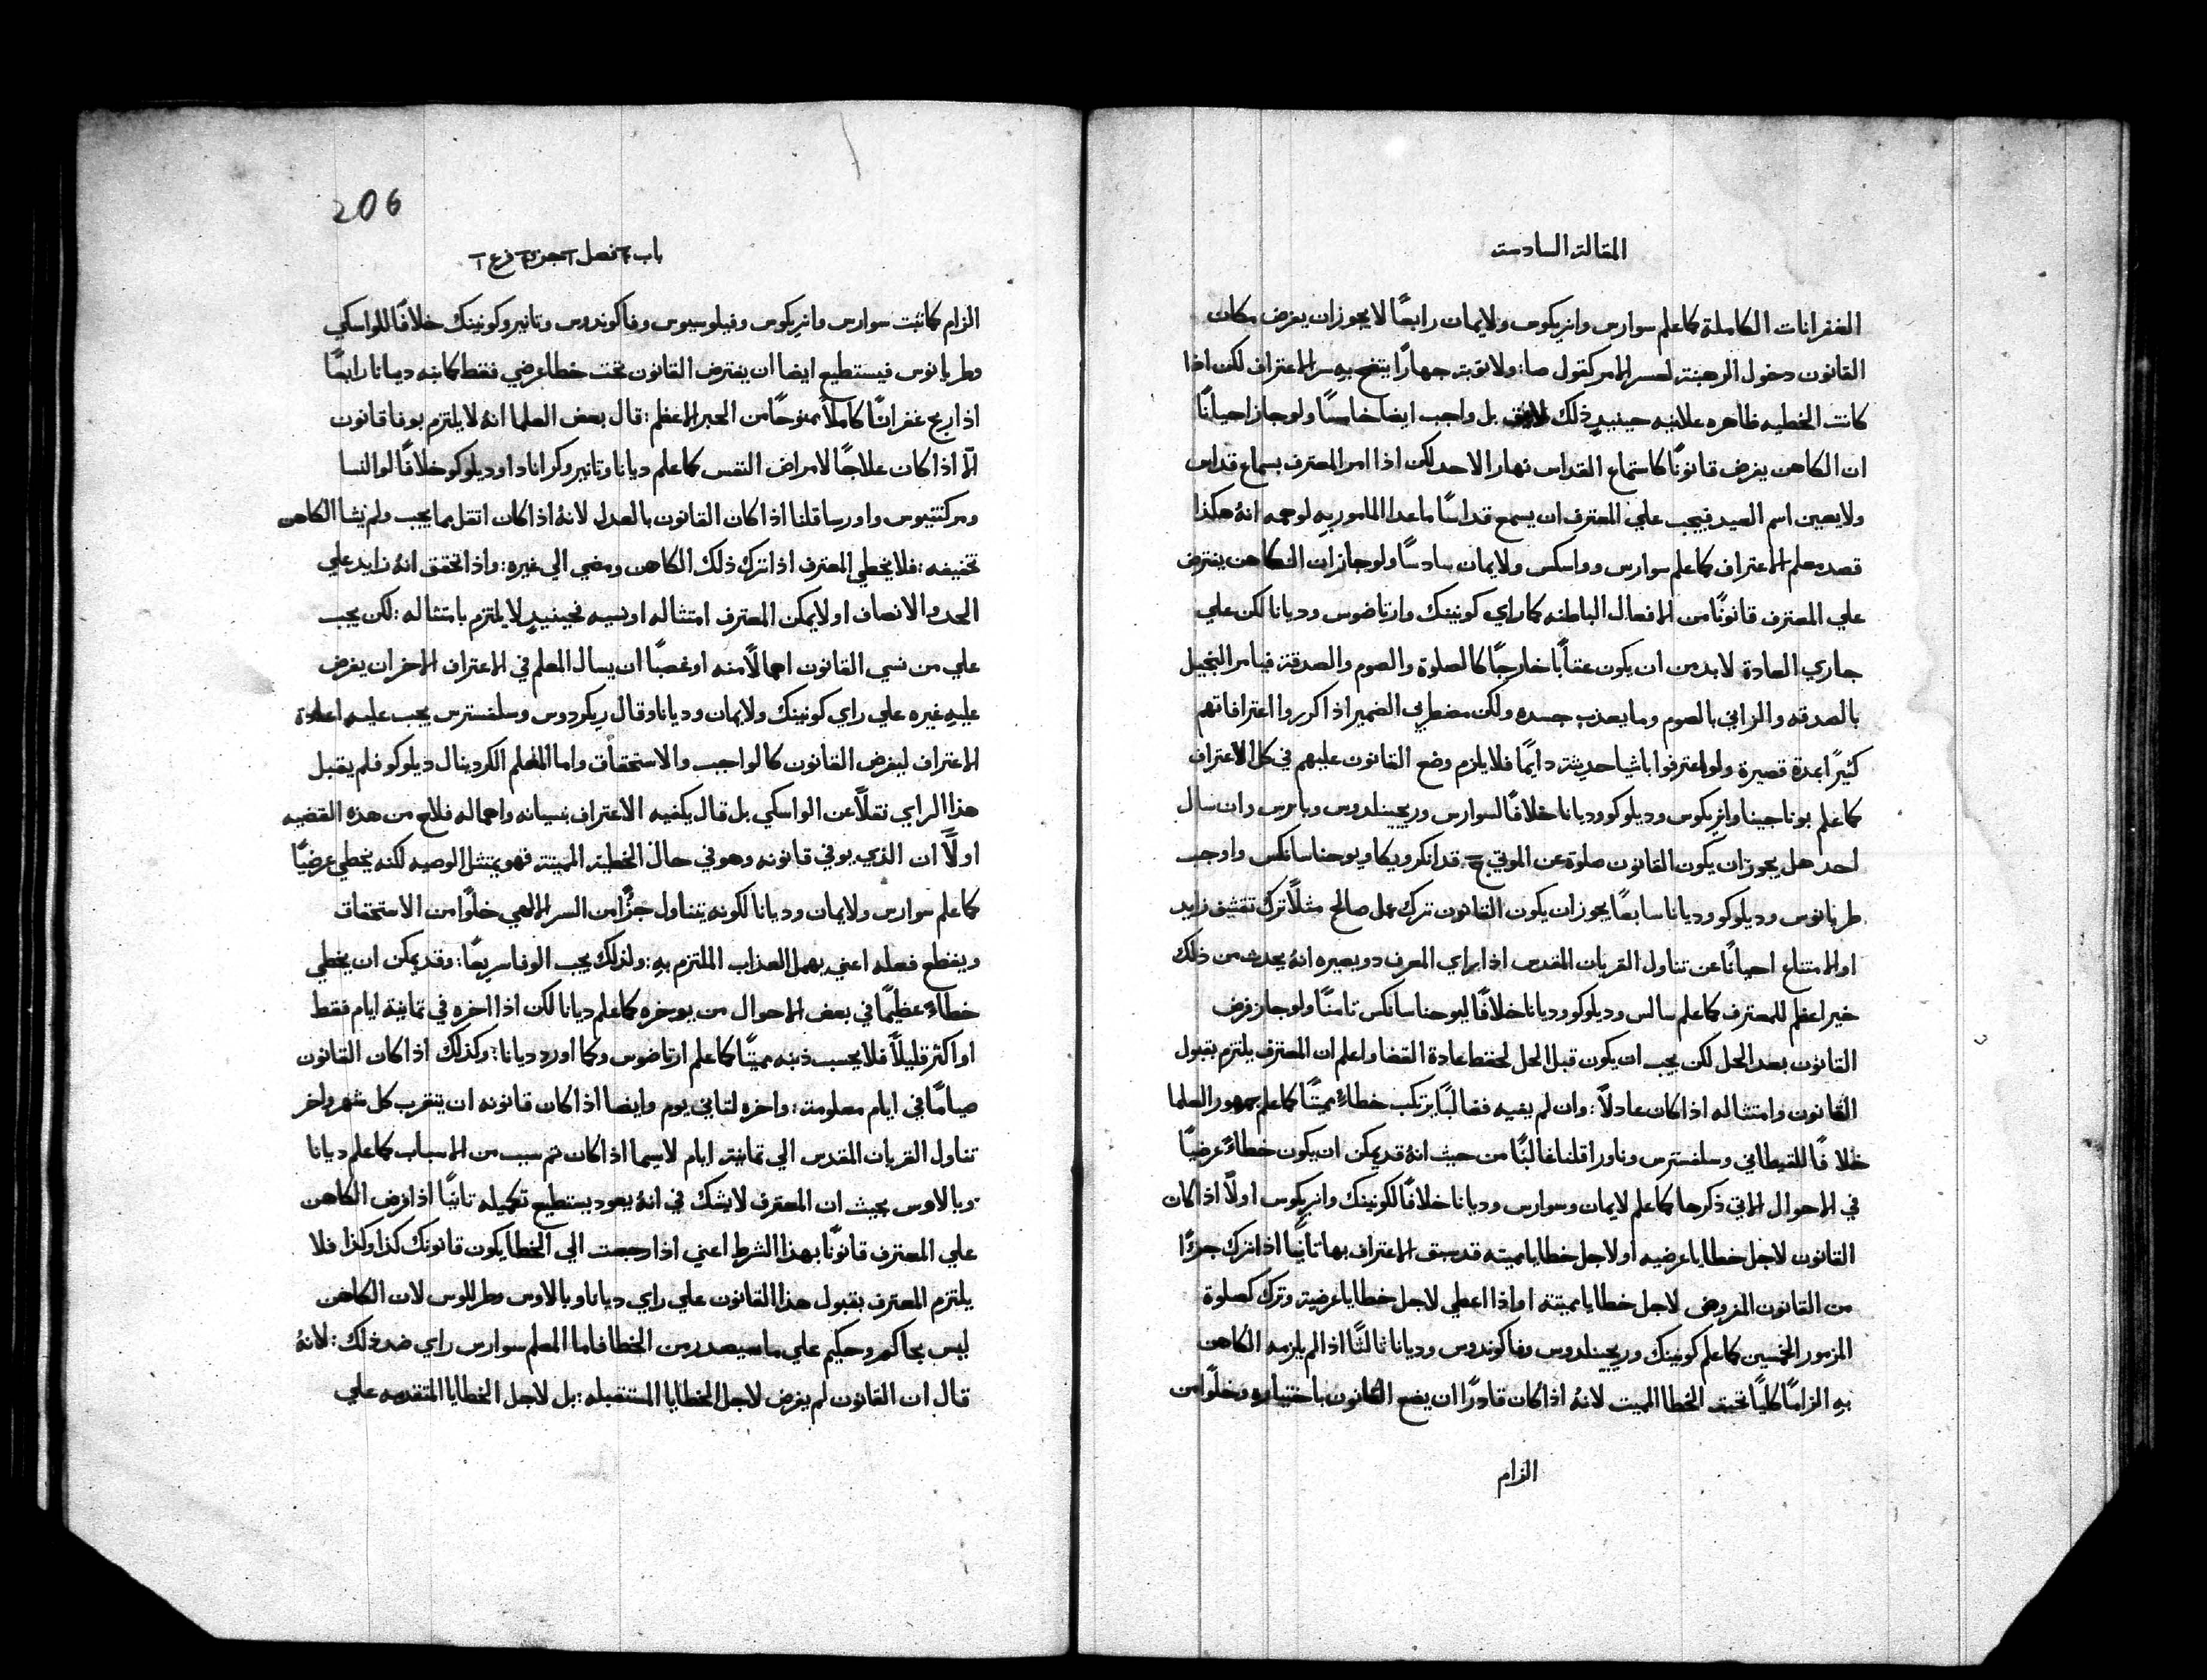 المقالة السادسة
الغفرانات الكاملة كما علم سوارس وانريكوس ولايمان رابعًا لا يجوز ان يفرض مكان
القانون دخول الرهبنة لعسر الامر كقول صا: ولا توبة جهارًا يتضح بهِ سر الاعتراف لكن اذا
كانت الخطيه ظاهره علانيه حينيدٍ ذلك بل واجب ايضا خامسًا ولو جاز احيانًا
ان الكاهن يفرض قانونًا كاستماع القداس نهار الاحد لكن اذا امر المعترف بسماع قداس
ولا يعين اسم العيد فيجب علي المعترف ان يسمع قداسًا ماعدا المامور بهِ لوجمه انهُ هكذا
قصد معلم الاعتراف كما علم سوارس وواسكس ولايمان سادسًا ولو جاز ان الكاهن يفترض
علي المعترف قانونًا من الافعال الباطنه كما راي كونينك وارتاضوس وديانا لكن علي
جاري العادة لابد من ان يكون عقابًا خارجًا كالصلوة والصوم والصدقة فيامر البخيل
بالصدقه والزاني بالصوم وما يعذب جسده ولكن مضطربي الضمير اذا كرروا اعترافاتهم
كثيرًا بمدة قصيرة ولو اعترفوا باشيا حديثة دايمًا فلا يلزم وضع القانون عليهم في كل الاعتراف
كما علم بوناجينا وانريكوس وديلوكو وديانا خلافًا لسوارس وريجينلدوس وبامرس وان سال
احد هل يجوز ان يكون القانون صلوة عن الموتي ج قد انكر ويكا ويوحنا سانكس واوجب
طرنانوس وديلوكو وديانا سابعًا يجوز ان يكون القانون ترك عمل صالح مثلًا ترك تقشف زايد
او الامتناع احيانًا عن تناول القربان المقدس اذا راي المعرف ذو بصيره انهُ يحدث من ذلك
خير اعظم للمعترف كما علم سالس وديلوكو وديانا خلافًا ليوحنا سانكس ثامنًا ولو جاز فرض
القانون بعد الحل لكن يجب ان يكون قبل الحل لحفظ عادة القضا واعلم ان المعترف يلتزم بقبول
القانون وامتثاله اذا كان عادلًا: وان لم يفيه فغالبًا يرتكب خطاءً مميتًا كما علم جمهور العلما
خلافًا للقيطاني وسلفسترس وناورا قلنا غالبًا من حيث انهُ قد يمكن ان يكون خطاءً عرضيًا
في الاحوال الاتي ذكرها كما علم لايمان وسوارس وديانا خلافًا لكونينك وانريكوس اولًا اذا كان
القانون لاجل خطايا عرضيه او لاجل خطايا مميته قد سبق الاعتراف بها ثانيًا اذا ترك جزًا
من القانون المفروض لاجل خطايا مميتة او اذا اعطي لاجل خطايا عرضية وترك كصلوة
المزمور الخمسين كما علم كونينك وريجينلدوس وفاكوندوس وديانا ثالثًا اذا لم يلزمه الكاهن
بهِ الزامًا كليًا تحت الخطا المميت لانهُ اذا كان قادرًا ان يضع القانون باختياره وخلوًا من
الزام
206
باب فصل جزء فرع
الزام كما ثبت سوارس وانريكوس وفيلوسيوس وفاكوندوس وتانير وكونينك خلافًا للواسكي
وطريانوس فيستطيع ايضا ان يفترض القانون تحت خطا عرضي فقط كما نبه ديانا رابعًا
اذا ربح غفرانًا كاملًا ممنوحًا من الحبر الاعظم: قال بعض العلما انهُ لا يلتزم بوفا قانون
الّا اذا كان علاجًا لامراض النفس كما علم ديانا وتانير وكرانادا وديلوكو خلافًا لوالنسا
ومركنتيوس واورسا قلنا اذا كان القانون بالعدل لانهُ اذا كان اثقل مما يجب ولم يشا الكاهن
تخفيفه: فلا يخطي المعترف اذا ترك ذلك الكاهن ومضي الي غيره: واذا تحقق انهُ زايد علي
الحد والانصاف او لا يمكن المعترف امتثاله او نسيه فحينيدٍ لا يلتزم بامتثاله: لكن يجب
علي من نسي القانون اهمالًا منه او غصبًا ان يسال المعلم في الاعتراف الاخر ان يفرض
عليهِ غيره علي راي كونينك ولايمان وديانا وقال ريكردوس وسلفسترس يجب عليه اعادة
الاعتراف ليفرض القانون كالواجب والاستحقاق واما المعلم الكردينال ديلوكو فلم يقبل
هذا الراي نقلًا عن الواسكي بل قال يكفيه الاعتراف بنسيانه واهماله فلاح من هذه القضيه
اولًا ان الذي يوفي قانونه وهو في حال الخطية المميتة فهو يمتثل الوصيه لكنه يخطي عرضيًا
كما علم سوارس ولايمان وديانا لكونه يتناول جزًا من السر الالهي خلوًا من الاستحقاق
ويقطع فعله اعني يهمل العذاب الملتزم بهِ: ولذلك يجب الوفا سريعًا: وقد يمكن ان يخطي
خطاءً عظيمًا في بعض الاحوال من يوخره كما علم ديانا لكن اذا اخره في ثمانية ايام فقط
او اكثر قليلًا فلا يحسب ذنبه مميتًا كما علم ارتاضوس وكما اورد ديانا: وكذلك اذا كان القانون
صيامًا في ايام معلومة: واخره لثاني يوم وايضا اذا كان قانونه ان يتقرب كل شهر واخر
تناول القربان المقدس الي ثمانية ايام لاسيما اذا كان ثم سبب من الاسباب كما علم ديانا
وبالاوس بحيث ان المعترف لا يشك في انهُ يعود يستطيع تكميله ثانيًا اذا فرض الكاهن
علي المعترف قانونًا بهذا الشرط اعني اذا رجعت الي الخطا يكون قانونك كذا وكذا فلا
يلتزم المعترف بقبول هذا القانون علي راي ديانا وبالاوس وطرللوس لان الكاهن
ليس بحاكم وحكيم علي ما سيصدر من الخطا فاما المعلم سوارس راي ضد ذلك: لانهُ
قال ان القانون لم يفرض لاجل الخطايا المستقبله: بل لاجل الخطايا المتقدمه علي